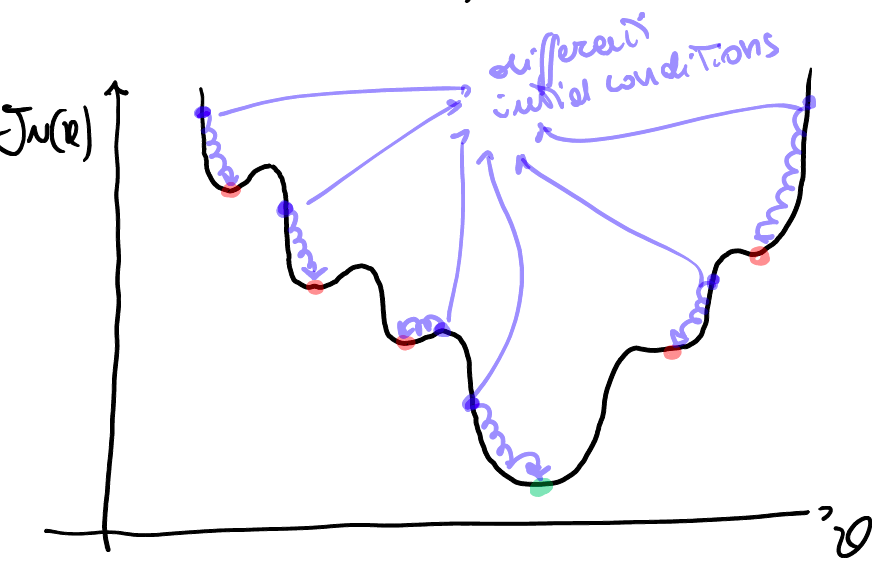 different
initial conditions
JN(θ)
θ